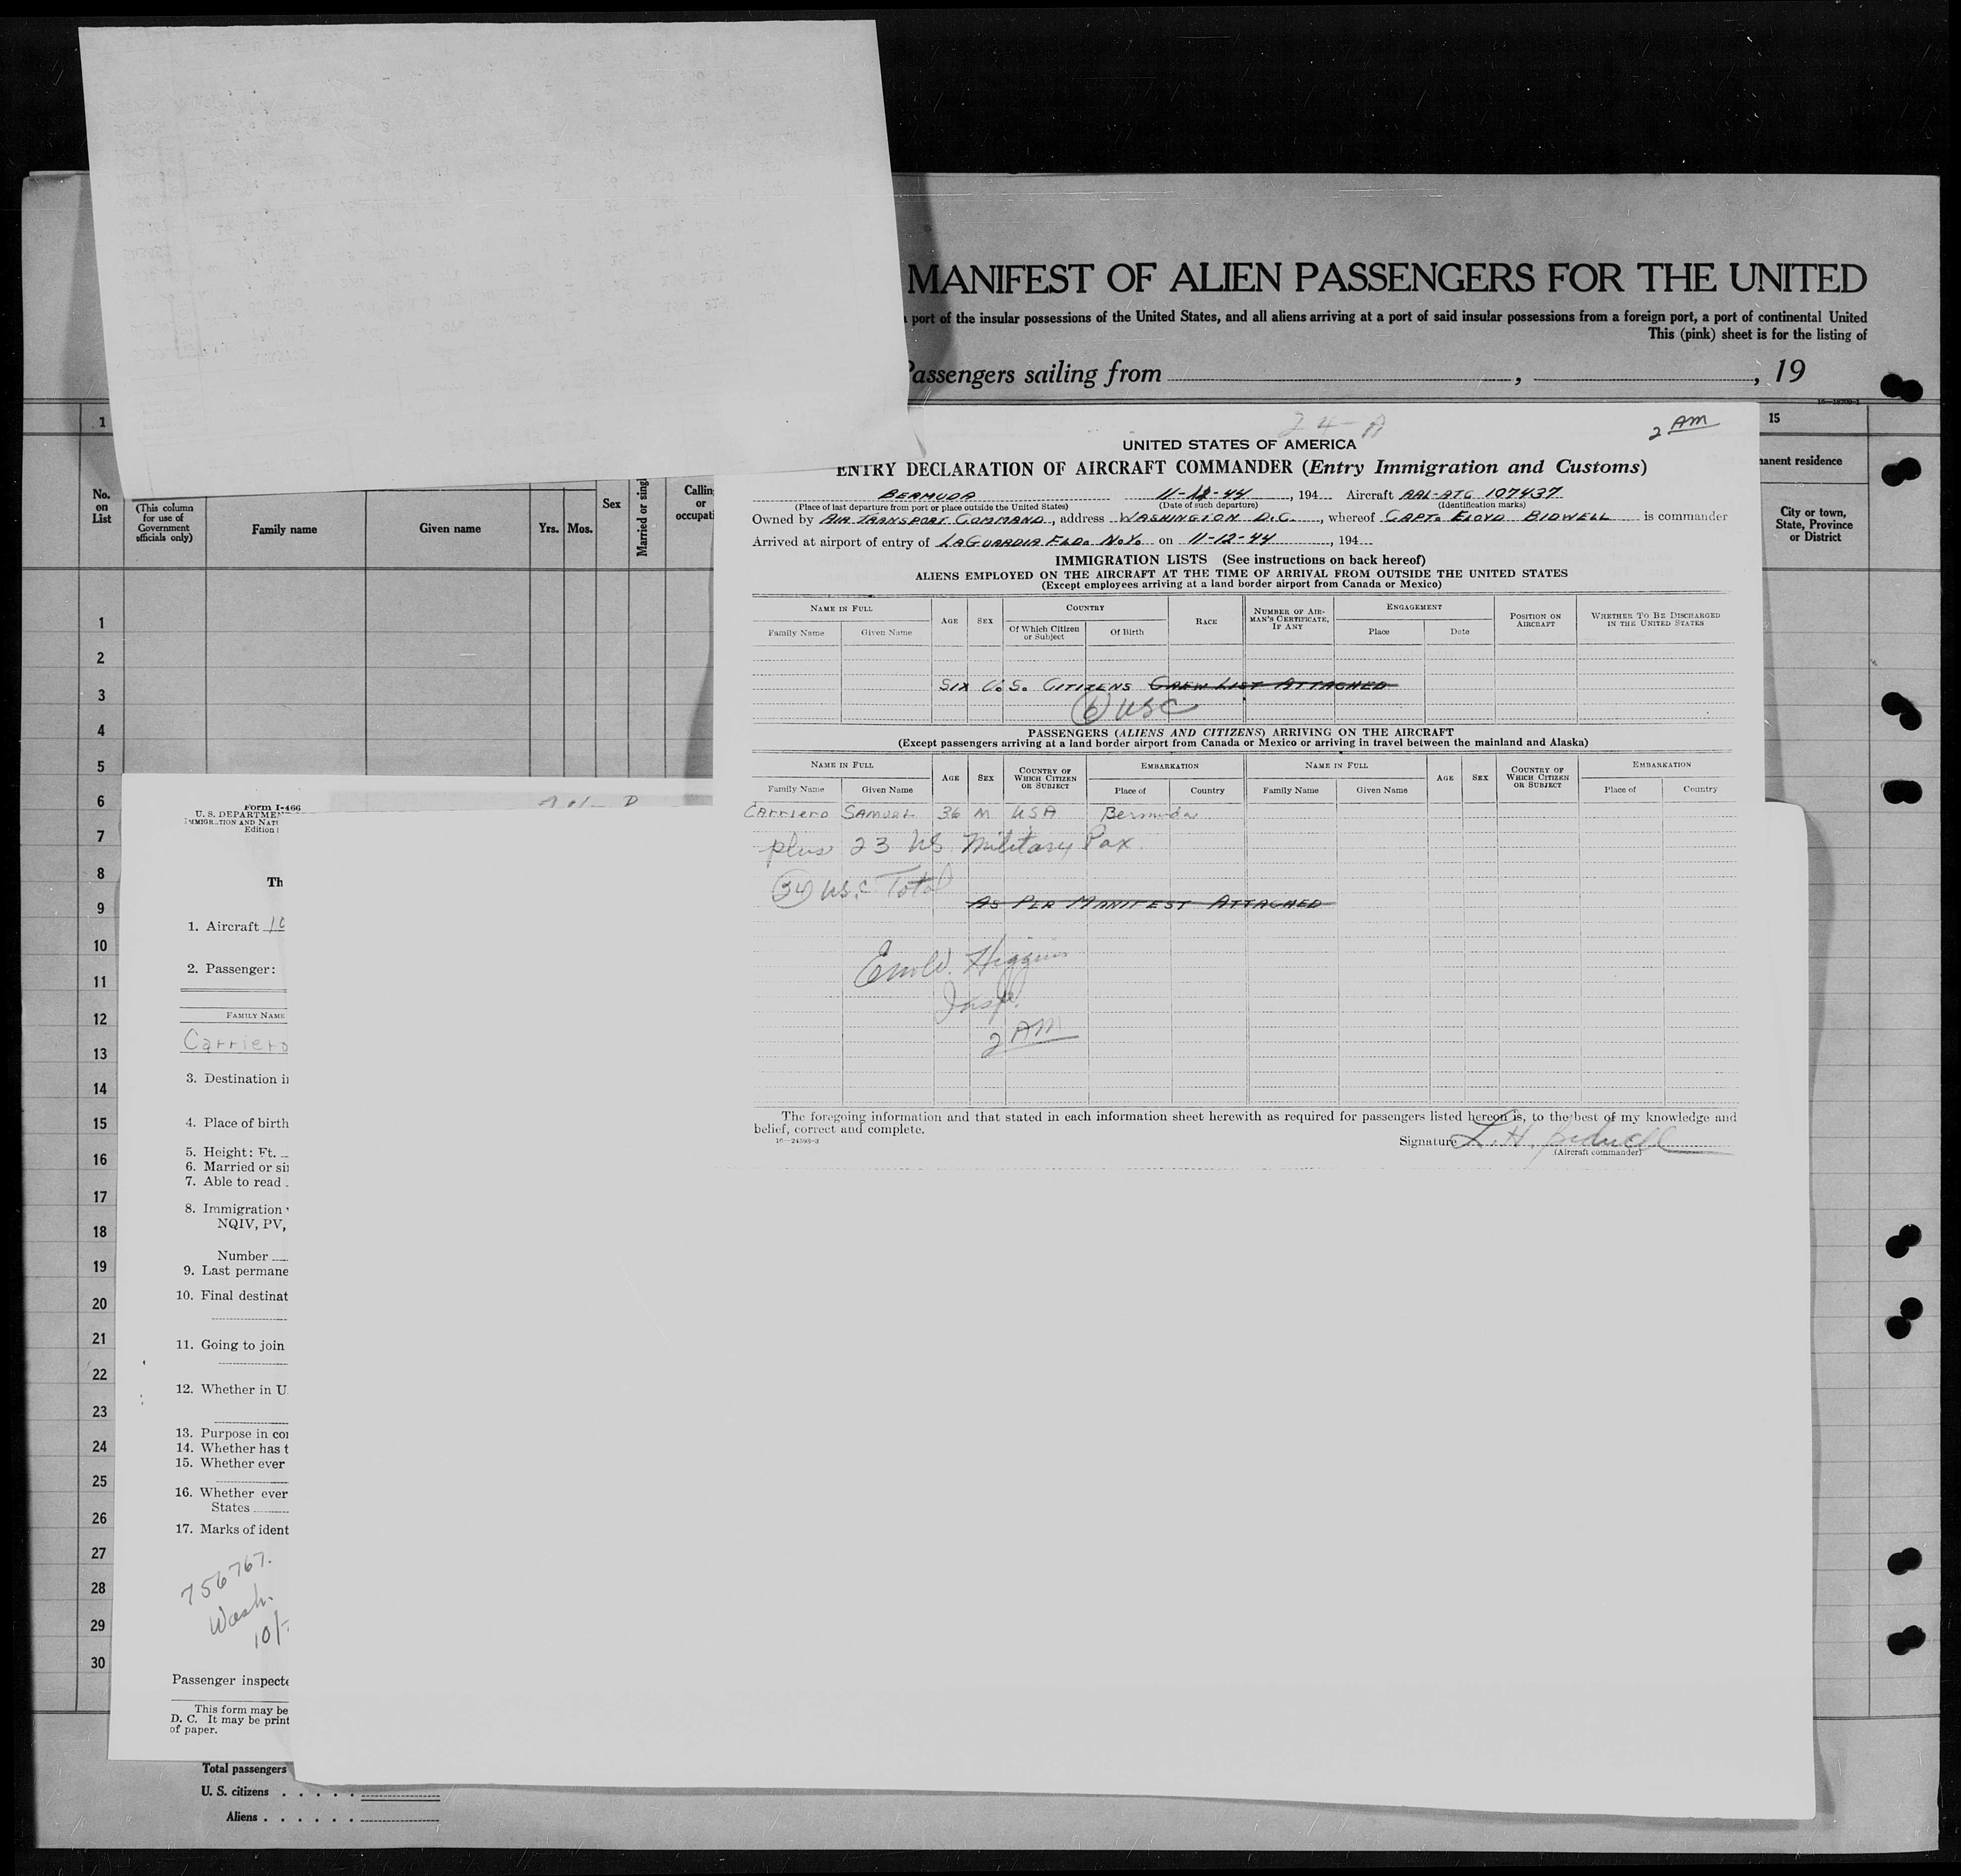 MANIFEST OF ALIEN PASSENGERS FOR THE UNITED
port of the insular possessions of the United States, and all aliens arriving at a port of said insular possessions from a foreign port, a port of continental United
This (pink) sheet is for the listing of
Passengers sailing from , , 19
1
15
No. on List
(This column for use of Government officials only)
Family name
Given name
Yrs.
Mos.
Sex
Married or singl
Callin
or
occupati
anent residence
City or town, State, Province or District
1
2
3
4
5
6
7
8
9
10
11
12
13
14
15
16
17
18
19
20
21
22
23
24
25
26
27
28
29
30
Total passengers
U. S. citizens
Aliens
24-A
2 AM
UNITED STATES OF AMERICA
ENTRY DECLARATION OF AIRCRAFT COMMANDER (Entry Immigration and Customs)
BERMUDA 11-12-44, 194 Aircraft AAL-ATC 107437
(Place of last departure from port or place outside the United States) (Date of such departure) (Identification marks)
Owned by AIR TRANSPORT COMMAND, address WASHINGTON D.C., whereof CAPT. FLOYD BIDWELL is commander
Arrived at airport of entry of LAGUARDIA FLD. N.Y. on 11-12-44, 194
IMMIGRATION LISTS (See instructions on back hereof)
ALIENS EMPLOYED ON THE AIRCRAFT AT THE TIME OF ARRIVAL FROM OUTSIDE THE UNITED STATES
(Except employees arriving at a land border airport from Canada or Mexico)
NAME IN FULL
Family Name
Given Name
AGE
SEX
COUNTRY
Of Which Citizen or Subject
Of Birth
RACE
NUMBER OF AIRMAN'S CERTIFICATE, IF ANY
ENGAGEMENT
Place
Date
POSITION ON AIRCRAFT
WHETHER TO BE DISCHARGED IN THE UNITED STATES
SIX U.S. CITIZENS CREW LIST ATTACHED
6 USC
PASSENGERS (ALIENS AND CITIZENS) ARRIVING ON THE AIRCRAFT
(Except passengers arriving at a land border airport from Canada or Mexico or arriving in travel between the mainland and Alaska)
NAME IN FULL AGE SEX COUNTRY OF WHICH CITIZEN OR SUBJECT EMBARKATION NAME IN FULL AGE SEX COUNTRY OF WHICH CITIZEN OR SUBJECT EMBARKATION
Family Name Given Name Place of Country Family Name Given Name Place of Country
Carriero SAMUEL 36 M USA Bermuda
plus 23 US Military Pax
USC Total
AS PER MANIFEST ATTACHED
Higgins
Insp.
2 AM
The foregoing information and that stated in each information sheet herewith as required for passengers listed hereon is, to the best of my knowledge and
belief, correct and complete.
16—24598-3
Signature L. H. Bidwell
(Aircraft commander)
Form I-466
U. S. DEPARTMEN
IMMIGRATION AND NATU
Edition
Th
1. Aircraft 10
2. Passenger:
FAMILY NAME
Carriero
3. Destination i
4. Place of birth
5. Height: Ft.
6. Married or si
7. Able to read
8. Immigration
NQIV, PV,
Number
9. Last permane
10. Final destinat
11. Going to join
12. Whether in U.
13. Purpose in co
14. Whether has t
15. Whether ever
16. Whether ever
States
17. Marks of ident
756767.
Wash.
10/
Passenger inspecte
This form may be
D. C. It may be print
of paper.